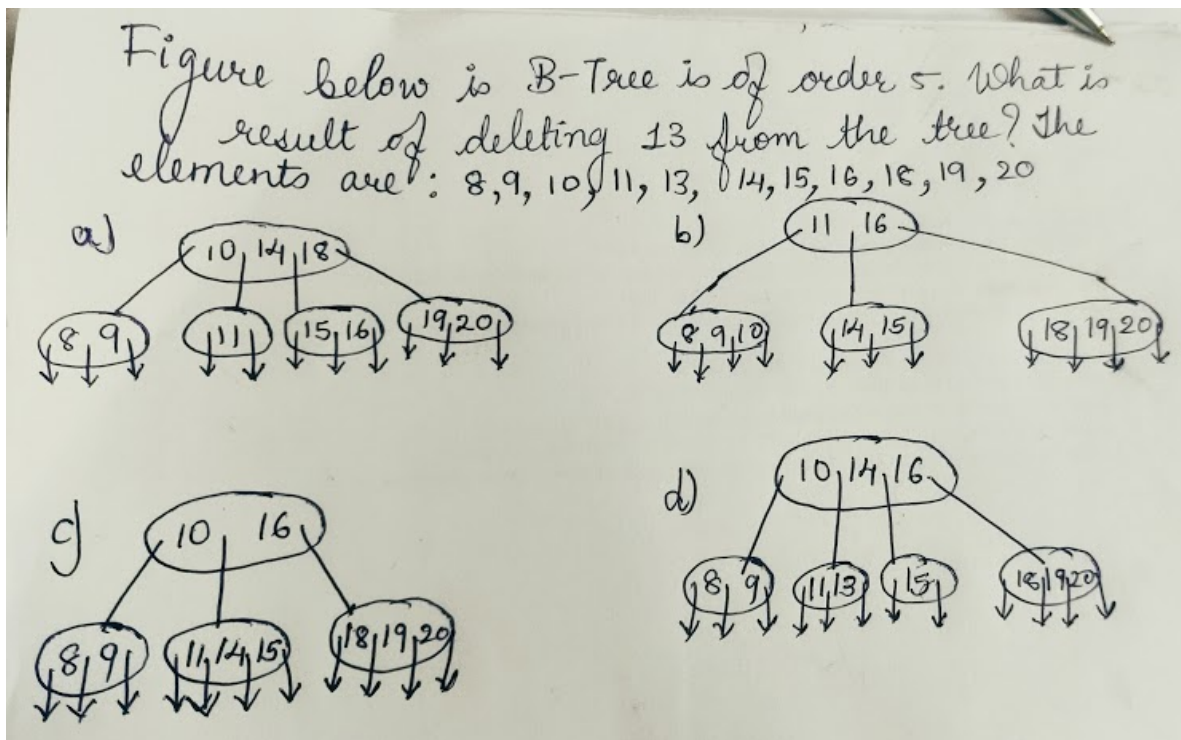 Figure below is B-Tree is of order 5. What is
result of deleting 13 from the tree? The
elements are: 8, 9, 10, 11, 13, 14, 15, 16, 18, 19, 20
a) 10 14 18
8 9 11 15 16 19 20
b) 11 16
8 9 10 14 15 18 19 20
c) 10 16
8 9 11 14 15 18 19 20
d) 10 14 16
8 9 11 13 15 18 19 20